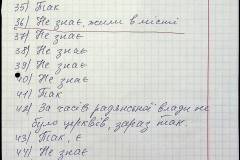 35) Так
36) Не знає, жили в місті
37) Не знає
38) Не знає
39) Не знає
40) Не знає
41) Так
42) За часів радянської влади не
було церквів, зараз так.
43) Так, є
44) Не знає